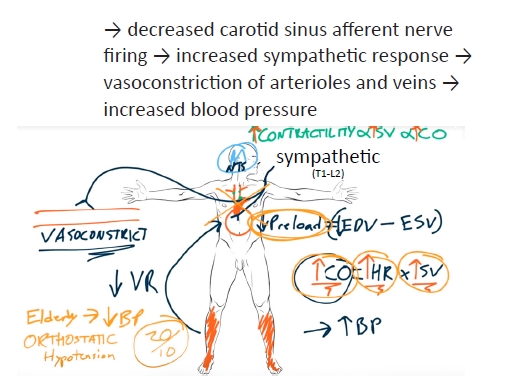 → decreased carotid sinus afferent nerve
firing → increased sympathetic response →
vasoconstriction of arterioles and veins →
increased blood pressure
↑CONTRACTILITY α↑SV α↑CO
NTS
sympathetic
(T1-L2)
VASOCONSTRICT
↓Preload=(↓EDV-ESV)
↓VR
↑CO=↑HR x↑SV
Elderly → ↓BP
ORTHOSTATIC
Hypotension
20/10
→ ↑BP